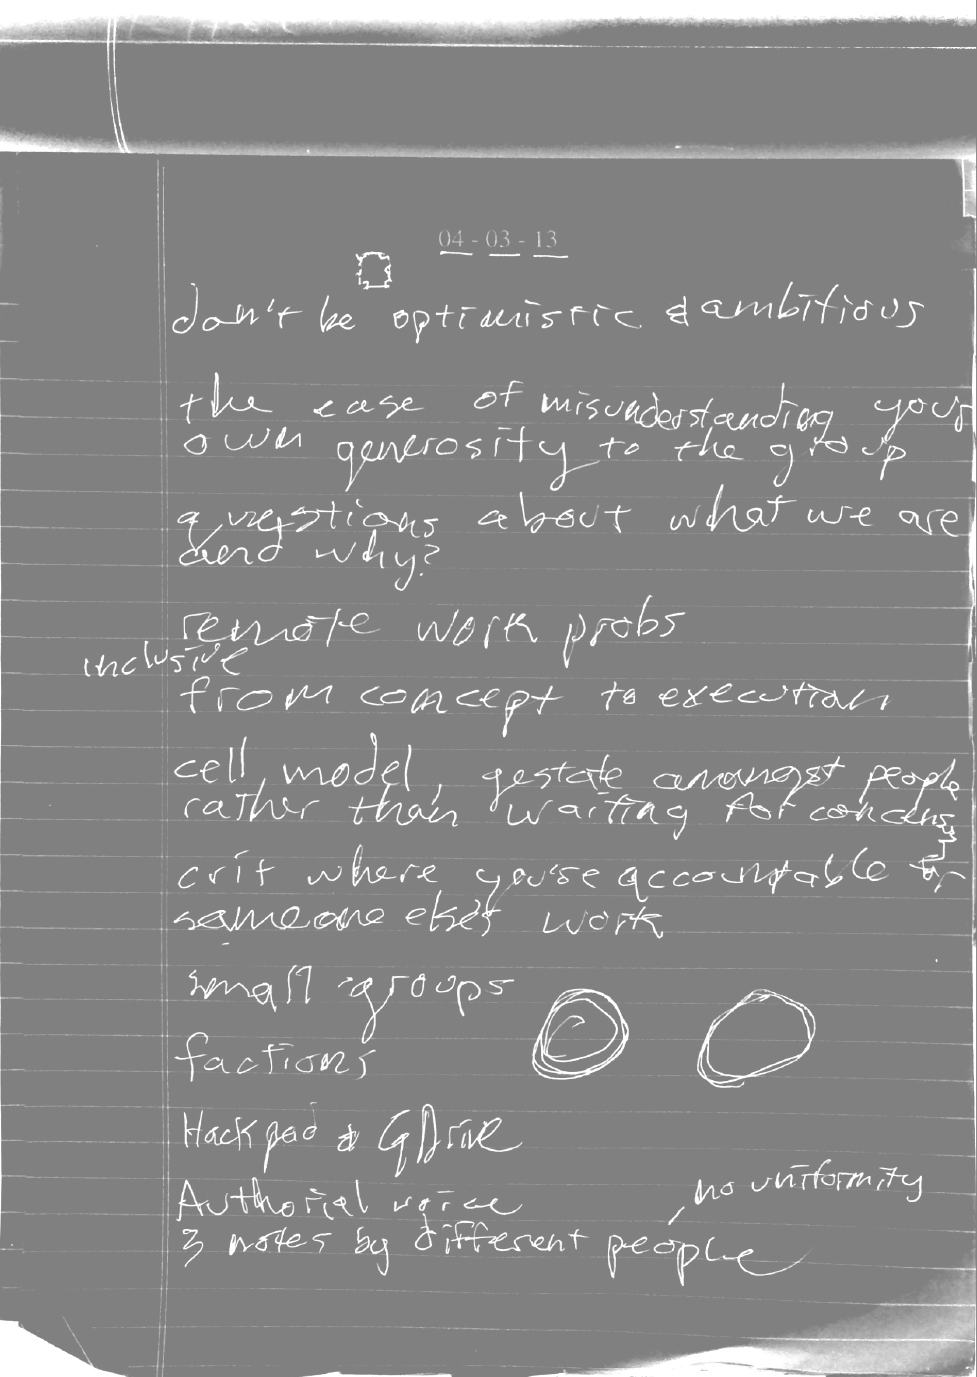 04-03-13
don't be optimistic & ambitious
the case of misunderstanding your
own generosity to the group
questions about what we are
and why?
remote work probs
inclusive
from concept to execution
cell model, gestate amongst people
rather than waiting for consensus
crit where you're accountable for
someone else's work
small groups
factions
Hackpad & GDrive
no uniformity
Authorial voice
3 notes by different people